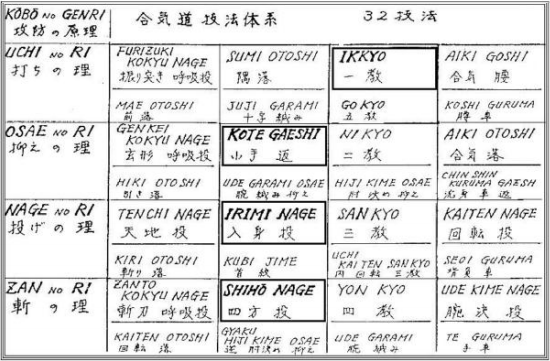 KŌBŌ NO GENRI
攻防の原理
合気道技法体系
32技法
UCHI NO RI
打ちの理
FURIZUKI
KOKYU NAGE
振り突き呼吸投
SUMI OTOSHI
隅落
IKKYO
一教
AIKI GOSHI
合気腰
MAE OTOSHI
前落
JUJI GARAMI
十字絡み
GO KYO
五教
KOSHI GURUMA
腰車
OSAE NO RI
抑えの理
GENKEI
KOKYU NAGE
玄形 呼吸投
KOTE GAESHI
小手返
NI KYO
二教
AIKI OTOSHI
合気落
HIKI OTOSHI
引き落
UDE GARAMI OSAE
腕絡み抑え
HIJI KIME OSAE
肘決め抑え
CHIN SHIN
KURUMA GAESH
沈身車返
NAGE NO RI
投げの理
TENCHI NAGE
天地投
IRIMI NAGE
入身投
SAN KYO
三教
KAITEN NAGE
回転投
KIRI OTOSHI
斬り落
KUBI JIME
首絞
UCHI
KAITEN SANKYO
内回転三教
SEOI GURUMA
背負車
ZAN NO RI
斬の理
ZANTO
KOKYU NAGE
斬刀呼吸投
SHIHŌ NAGE
四方投
YON KYO
四教
UDE KIME NAGE
腕決投
KAITEN OTOSHI
回転落
GYAKU
HIJI KIME OSAE
逆肘決め抑え
UDE GARAMI
腕絡み
TE GURUMA
手車